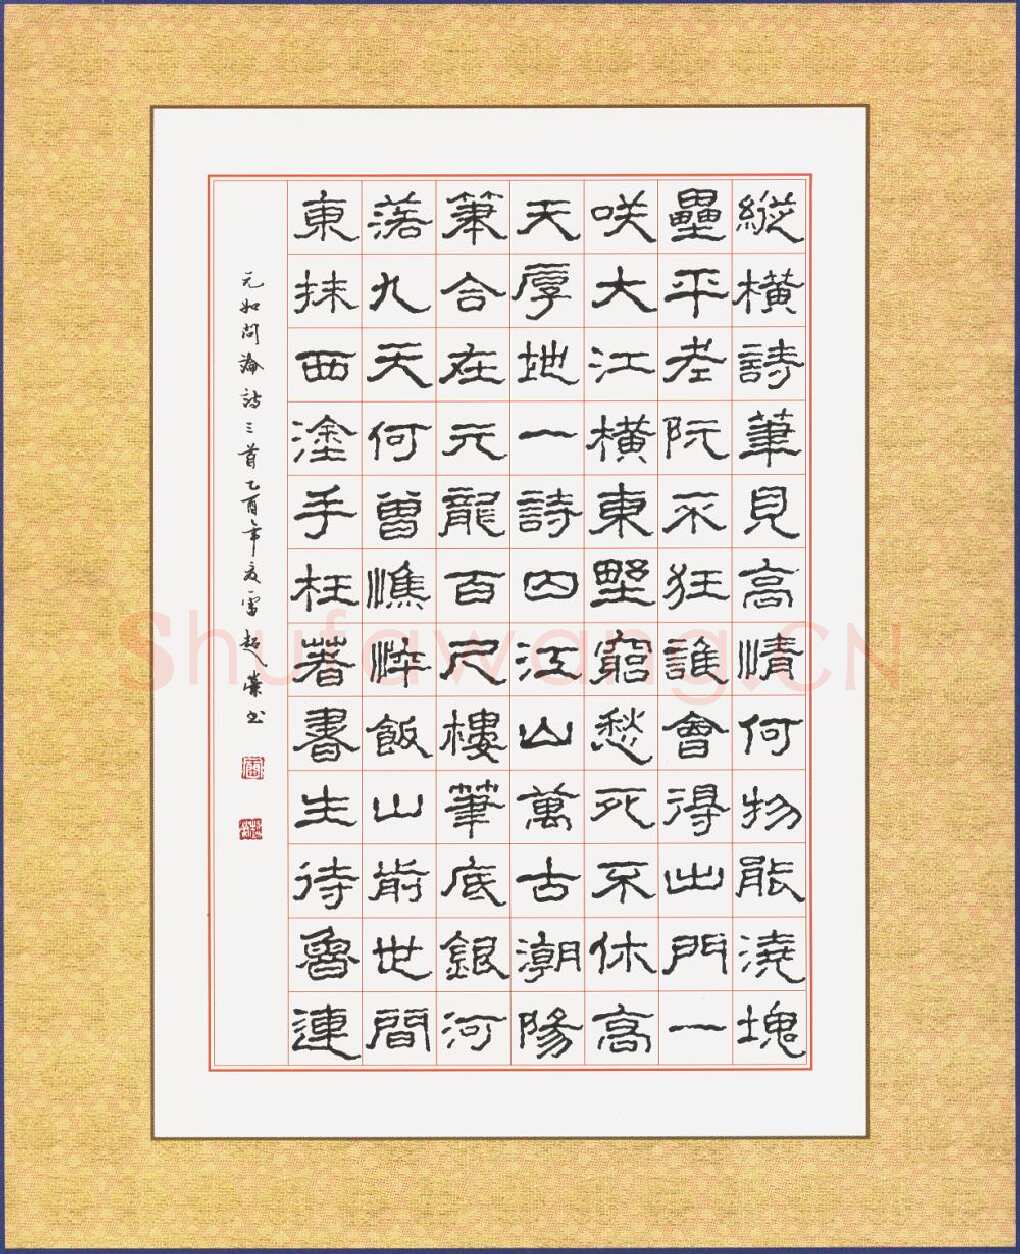 縱橫詩筆見高情何物能澆塊
壘平老阮不狂誰會得出門一
咲大江橫東墅窮愁死不休高
天厚地一詩囚江山萬古潮陽
筆合在元龍百尺樓筆底銀河
落九天何曾憔悴飯山前世間
東抹西塗手枉著書生待魯連
元好問論詩三首乙酉年夏雷超榮书
Shufawang.CN